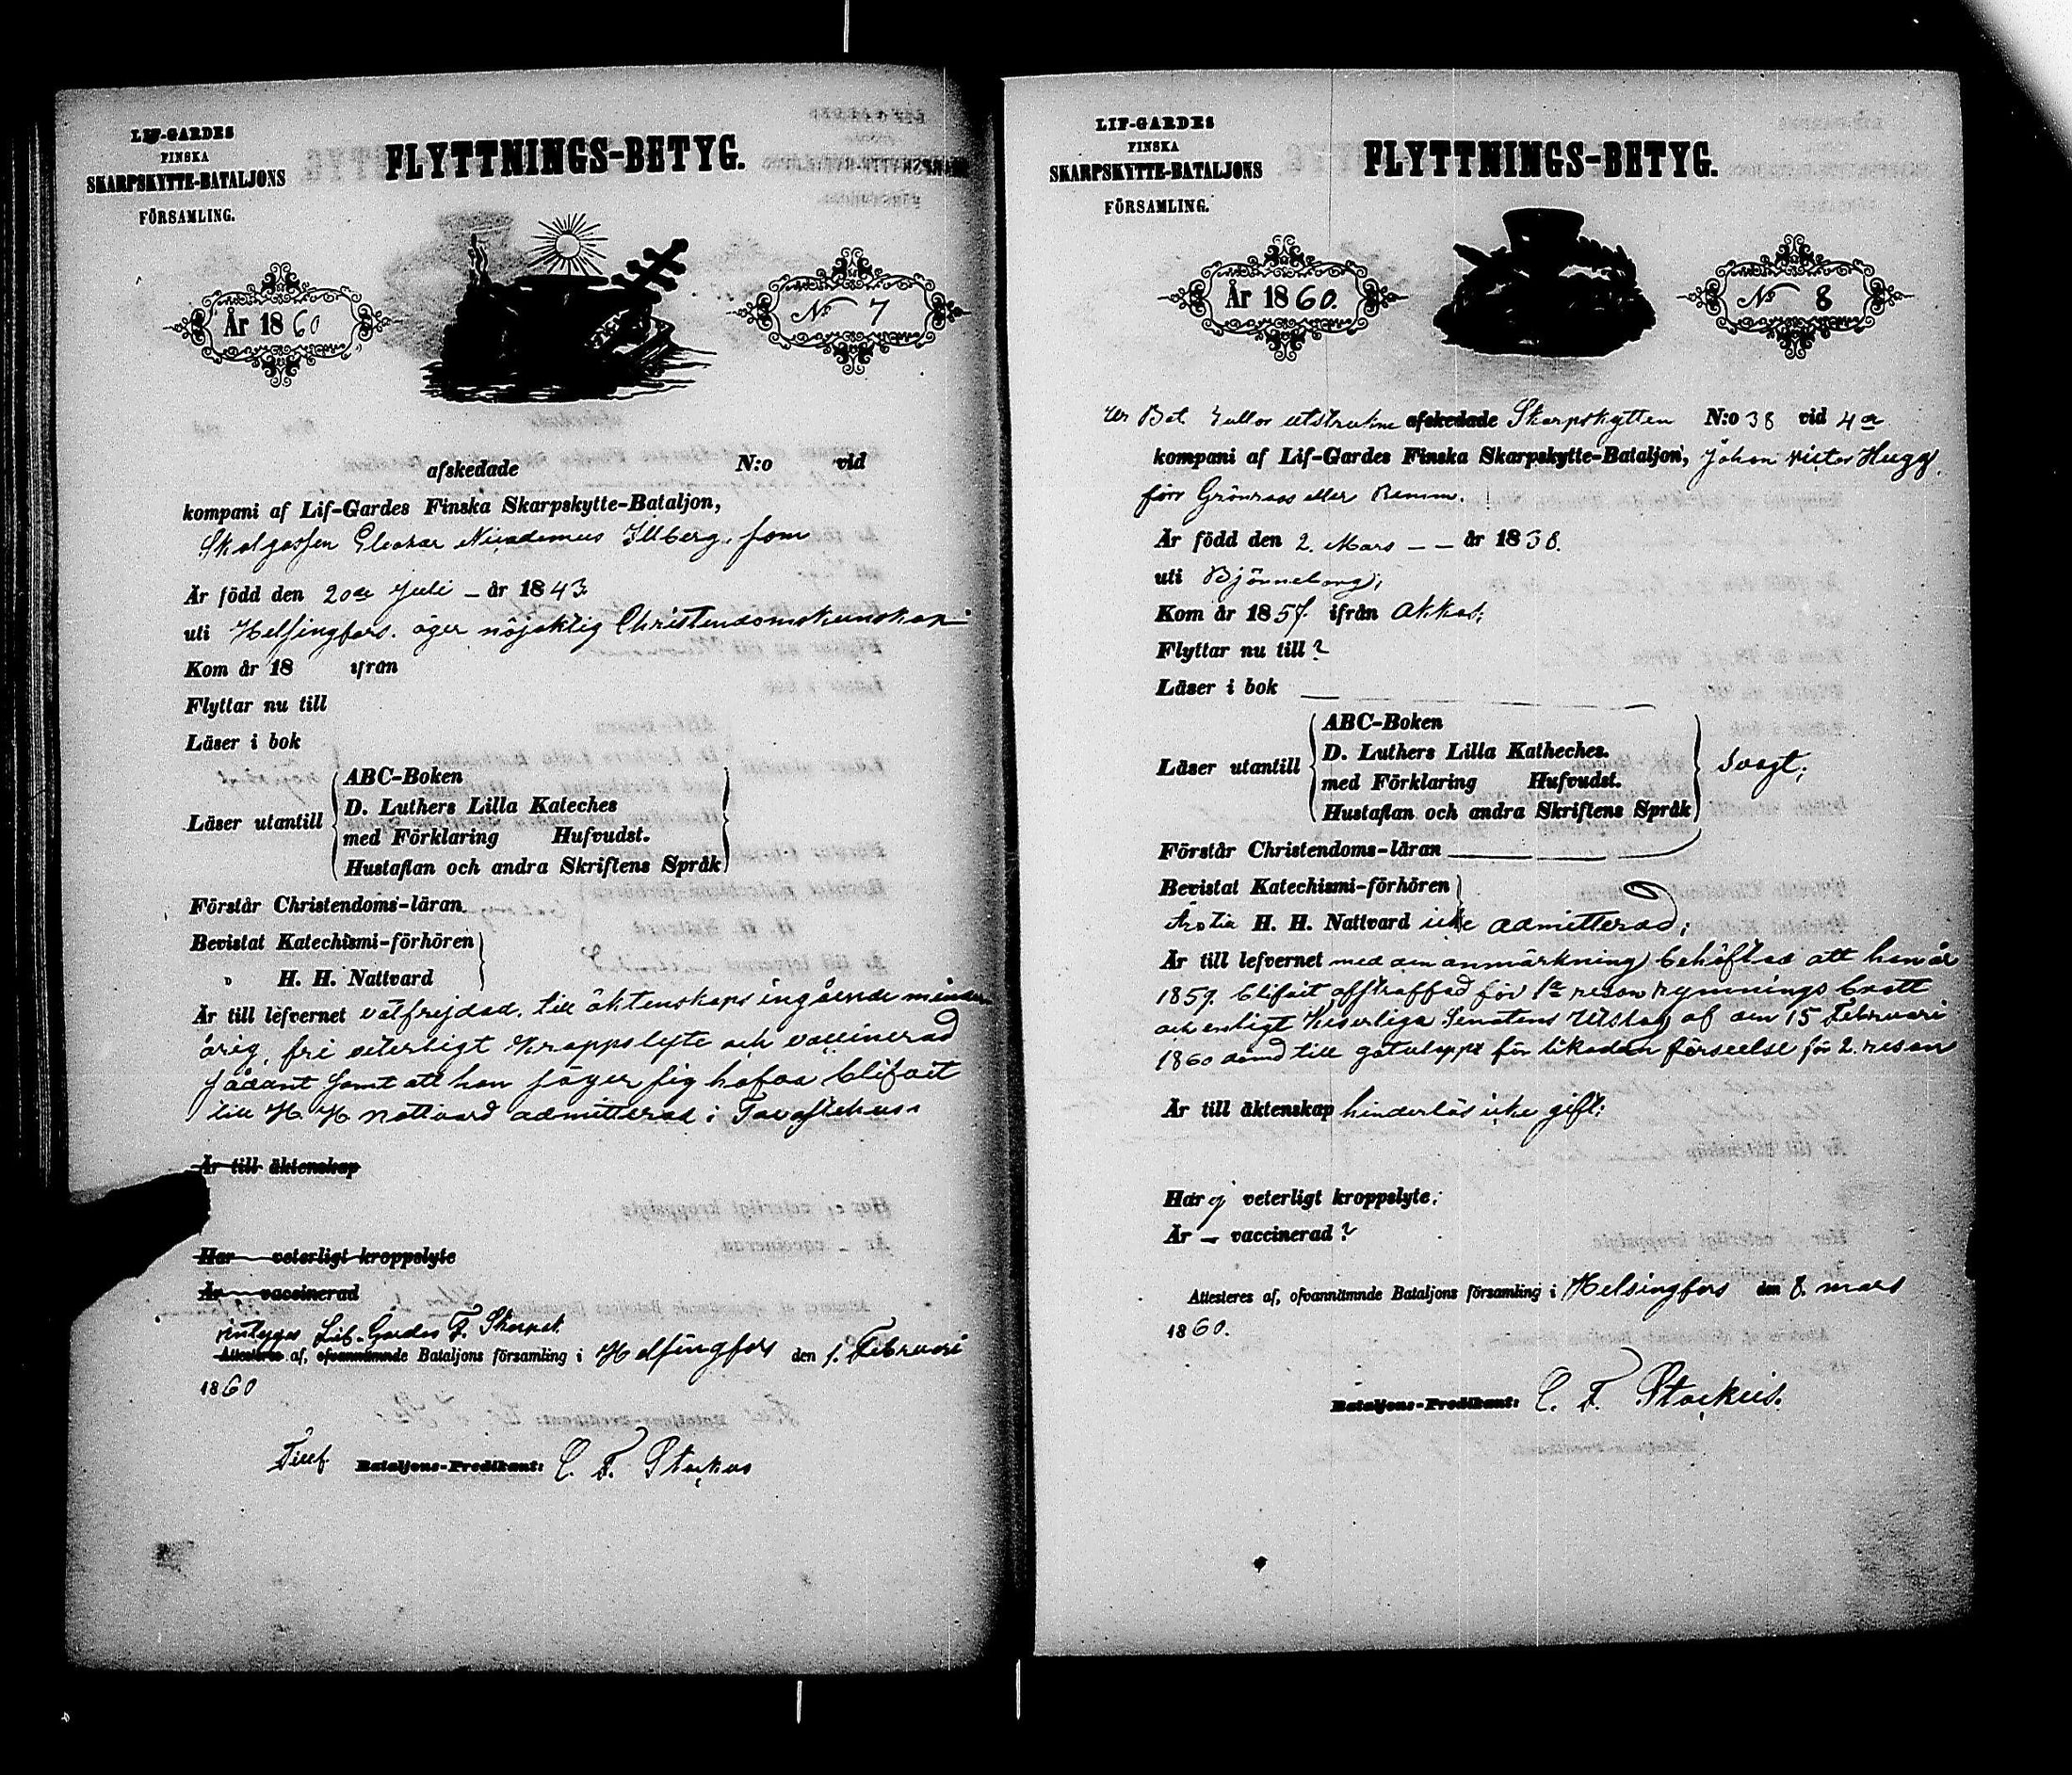 LIF-GARDES
FINSKA
SKARPSKYTTE-BATALJONS
FÖRSAMLING.
FLYTTNINGS-BETYG.
År 1860
No 7
afskedade N:o vid
kompani af Lif-Gardes Finska Skarpskytte-Bataljon,
Skolgossen Nicodemus Illberg, som
Är född den 20de Juli - år 1843
uti Helsingfors. äger nöjaktig Christendomskunskap
Kom år 18 ifrån
Flyttar nu till
Läser i bok
Läser utantill
ABC-Boken
D. Luthers Lilla Kateches
med Förklaring Hufvudst.
Hustaflan och andra Skriftens Språk
Förstår Christendoms-läran
Bevistat Katechismi-förhören
" H. H. Nattvard
Är till lefvernet välfrejdad, till äktenskaps ingående minder
årig, fri veterligt kroppslyte och vaccinerad
sådant samt att han säger sig hafva blifvit
till H. H. Nattvard admitterad i Tavastehus
Är till äktenskap
Har veterligt kroppslyte
Är vaccinerad
intygas Lif-Gardes F. Skarpsk.
Attesteras af, ofvannämnde Bataljons församling i Helsingfors den 1. Februari
1860
Bataljons-Predikant: C. F.
LIF-GARDES
FINSKA
SKARPSKYTTE-BATALJONS
FÖRSAMLING.
FLYTTNINGS-BETYG.
År 1860.
No 8
Ur Bat. Rullor utstrukne afskedade Skarpskytten N:o 38 vid 4de
kompani af Lif-Gardes Finska Skarpskytte-Bataljon, Johan Victor Hugg,
förr Grönroos eller
Är född den 2. Mars - - år 1838.
uti Björneborg;
Kom år 1857. ifrån Akkas;
Flyttar nu till ?
Läser i bok
Läser utantill
ABC-Boken
D. Luthers Lilla Katheches.
med Förklaring Hufvudst.
Hustaflan och andra Skriftens Språk
svagt;
Förstår Christendoms-läran
Bevistat Katechismi-förhören
H. H. Nattvard icke admitterad;
Är till lefvernet med den anmärkning behäftad att han år
1859. blifvit afstraffad för 1a resan rymnings brott
och enligt Keiserliga Senatens Utslag af den 15 Februari
1860 dömd till gatulopp för likadan förseelse för 2. resan
Är till äktenskap hinderlös icke gift;
Har ej veterligt kroppslyte;
Är - vaccinerad ?
Attesteres af, ofvannämnde Bataljons församling i Helsingfors den 8. mars
1860.
Bataljons-Predikant: C. F.